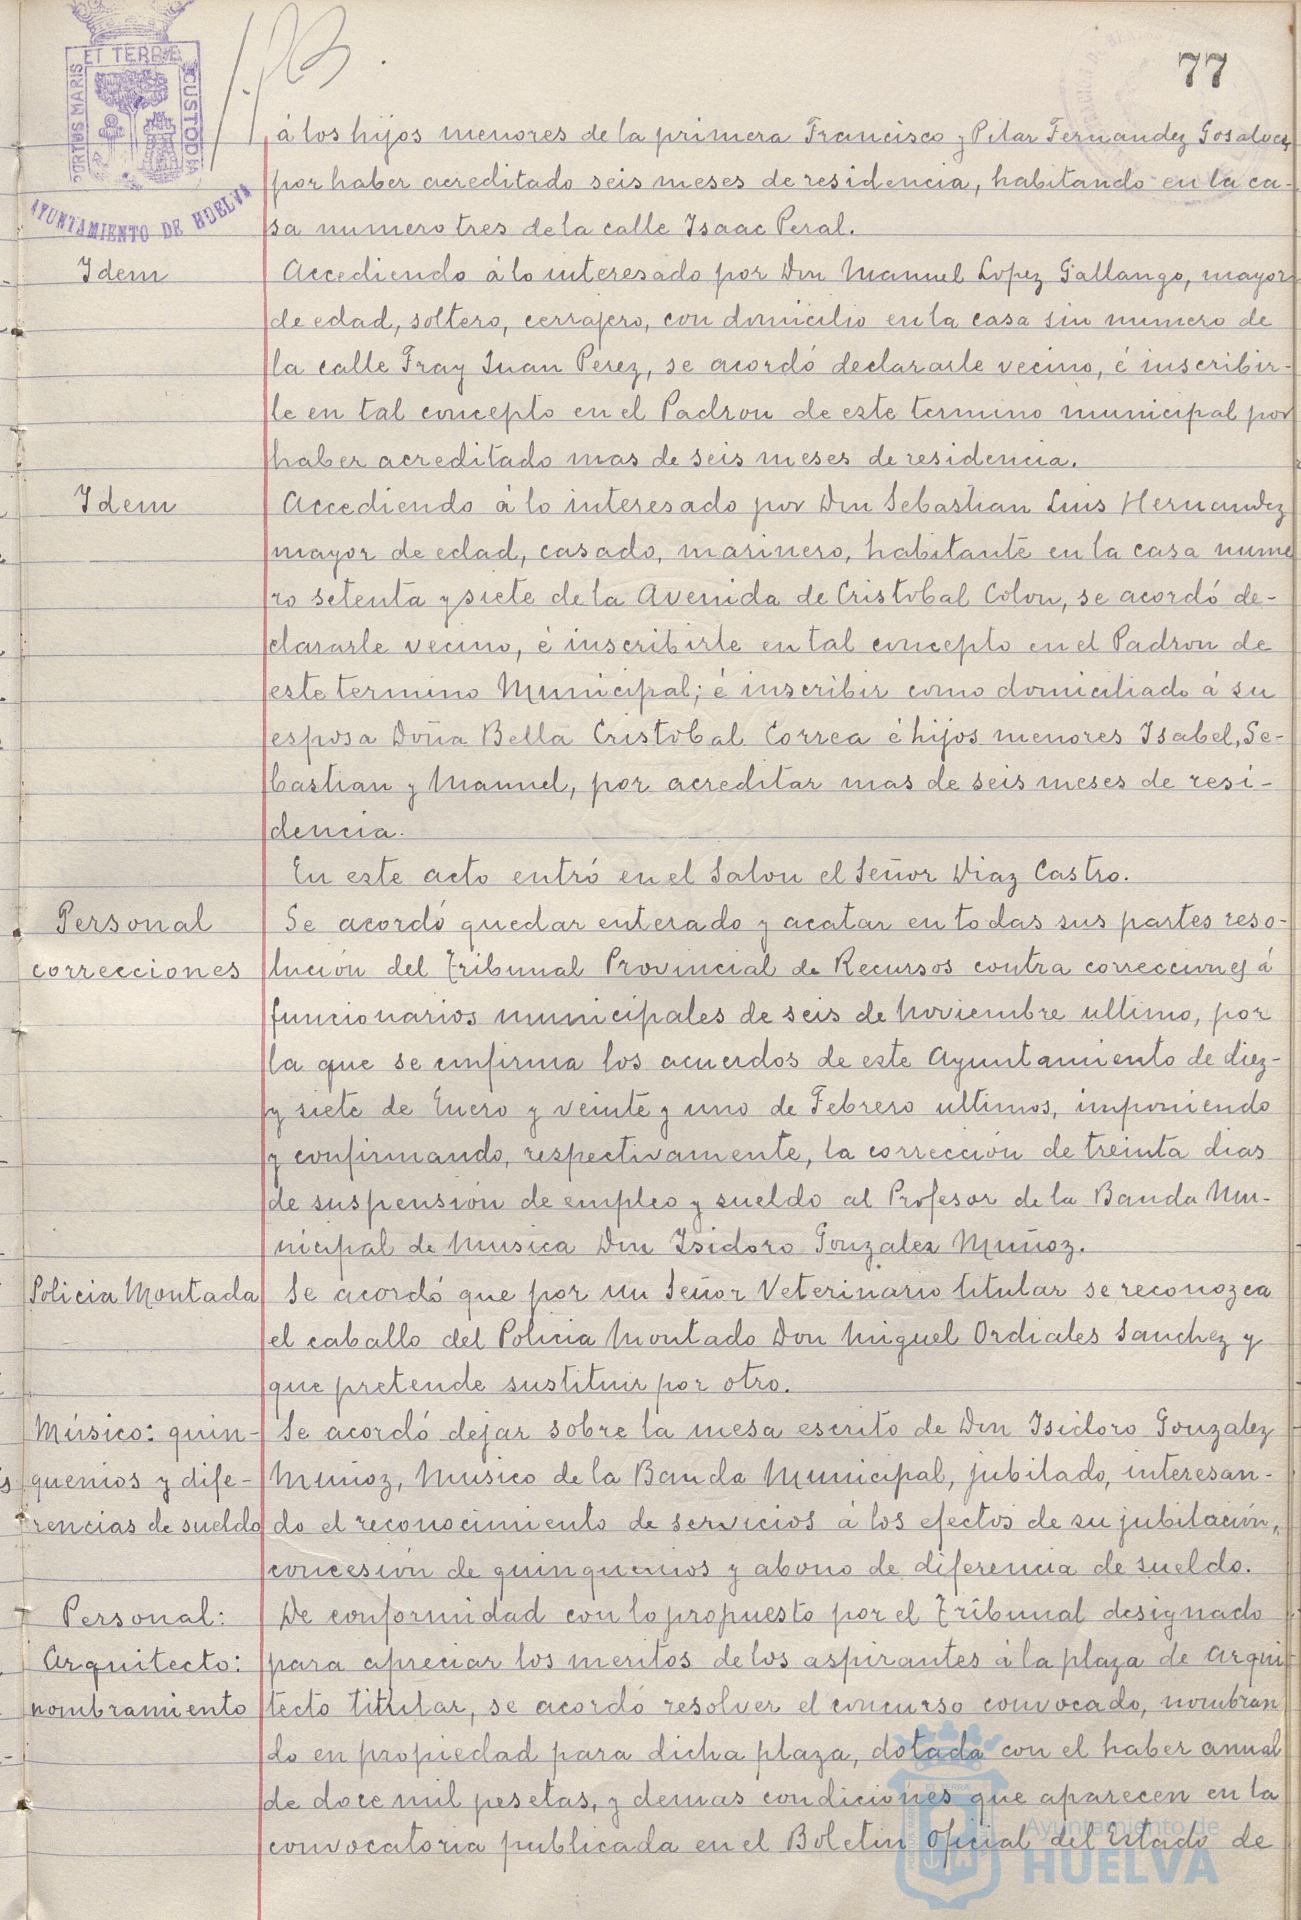 77
PORTUS MARIS ET TERRE CUSTODIA
AYUNTAMIENTO DE HUELVA
á los hijos menores de la primera Francisco y Pilar Fernandez Gosalvez,
por haber acreditado seis meses de residencia, habitando en la ca-
sa numero tres de la calle Isaac Peral.
Idem
Accediendo á lo interesado por Don Manuel Lopez Gallango, mayor
de edad, soltero, cerrajero, con domicilio en la casa sin numero de
la calle Fray Juan Perez, se acordó declararle vecino, é inscribir-
le en tal concepto en el Padron de este termino municipal por
haber acreditado mas de seis meses de residencia.
Idem
Accediendo á lo interesado por Don Sebastian Luis Hernandez
mayor de edad, casado, marinero, habitante en la casa nume
ro setenta y siete de la Avenida de Cristobal Colon, se acordó de-
clararle vecino, é inscribirle en tal concepto en el Padron de
este termino Municipal; é inscribir como domiciliado á su
esposa Doña Bella Cristobal Correa é hijos menores Isabel, Se-
bastian y Manuel, por acreditar mas de seis meses de resi-
dencia.
En este acto entró en el Salon el Señor Diaz Castro.
Personal
correcciones
Se acordó quedar enterado y acatar en todas sus partes reso-
lución del Tribunal Provincial de Recursos contra correcciones á
funcionarios municipales de seis de Noviembre ultimo, por
la que se confirma los acuerdos de este Ayuntamiento de diez-
y siete de Enero y veinte y uno de Febrero ultimos, imponiendo
y confirmando, respectivamente, la corrección de treinta dias
de suspensión de empleo y sueldo al Profesor de la Banda Mu-
nicipal de Musica Don Isidoro Gonzalez Muñoz.
Policia Montada
Se acordó que por un Señor Veterinario titular se reconozca
el caballo del Policia Montado Don Miguel Ordiales Sanchez y
que pretende sustituir por otro.
Músico: quin-
quenios y dife-
rencias de sueldo
Se acordó dejar sobre la mesa escrito de Don Isidoro Gonzalez
Muñoz, Musico de la Banda Municipal, jubilado, interesan-
do el reconocimiento de servicios á los efectos de su jubilación,
concesión de quinquenios y abono de diferencia de sueldo.
Personal:
Arquitecto:
nombramiento
De conformidad con lo propuesto por el Tribunal designado
para apreciar los meritos de los aspirantes á la plaza de Arqui-
tecto titular, se acordó resolver el concurso convocado, nombran
do en propiedad para dicha plaza, dotada con el haber anual
de doce mil pesetas, y demas condiciones que aparecen en la
convocatoria publicada en el Boletin Oficial del Estado de
Ayuntamiento de
HUELVA